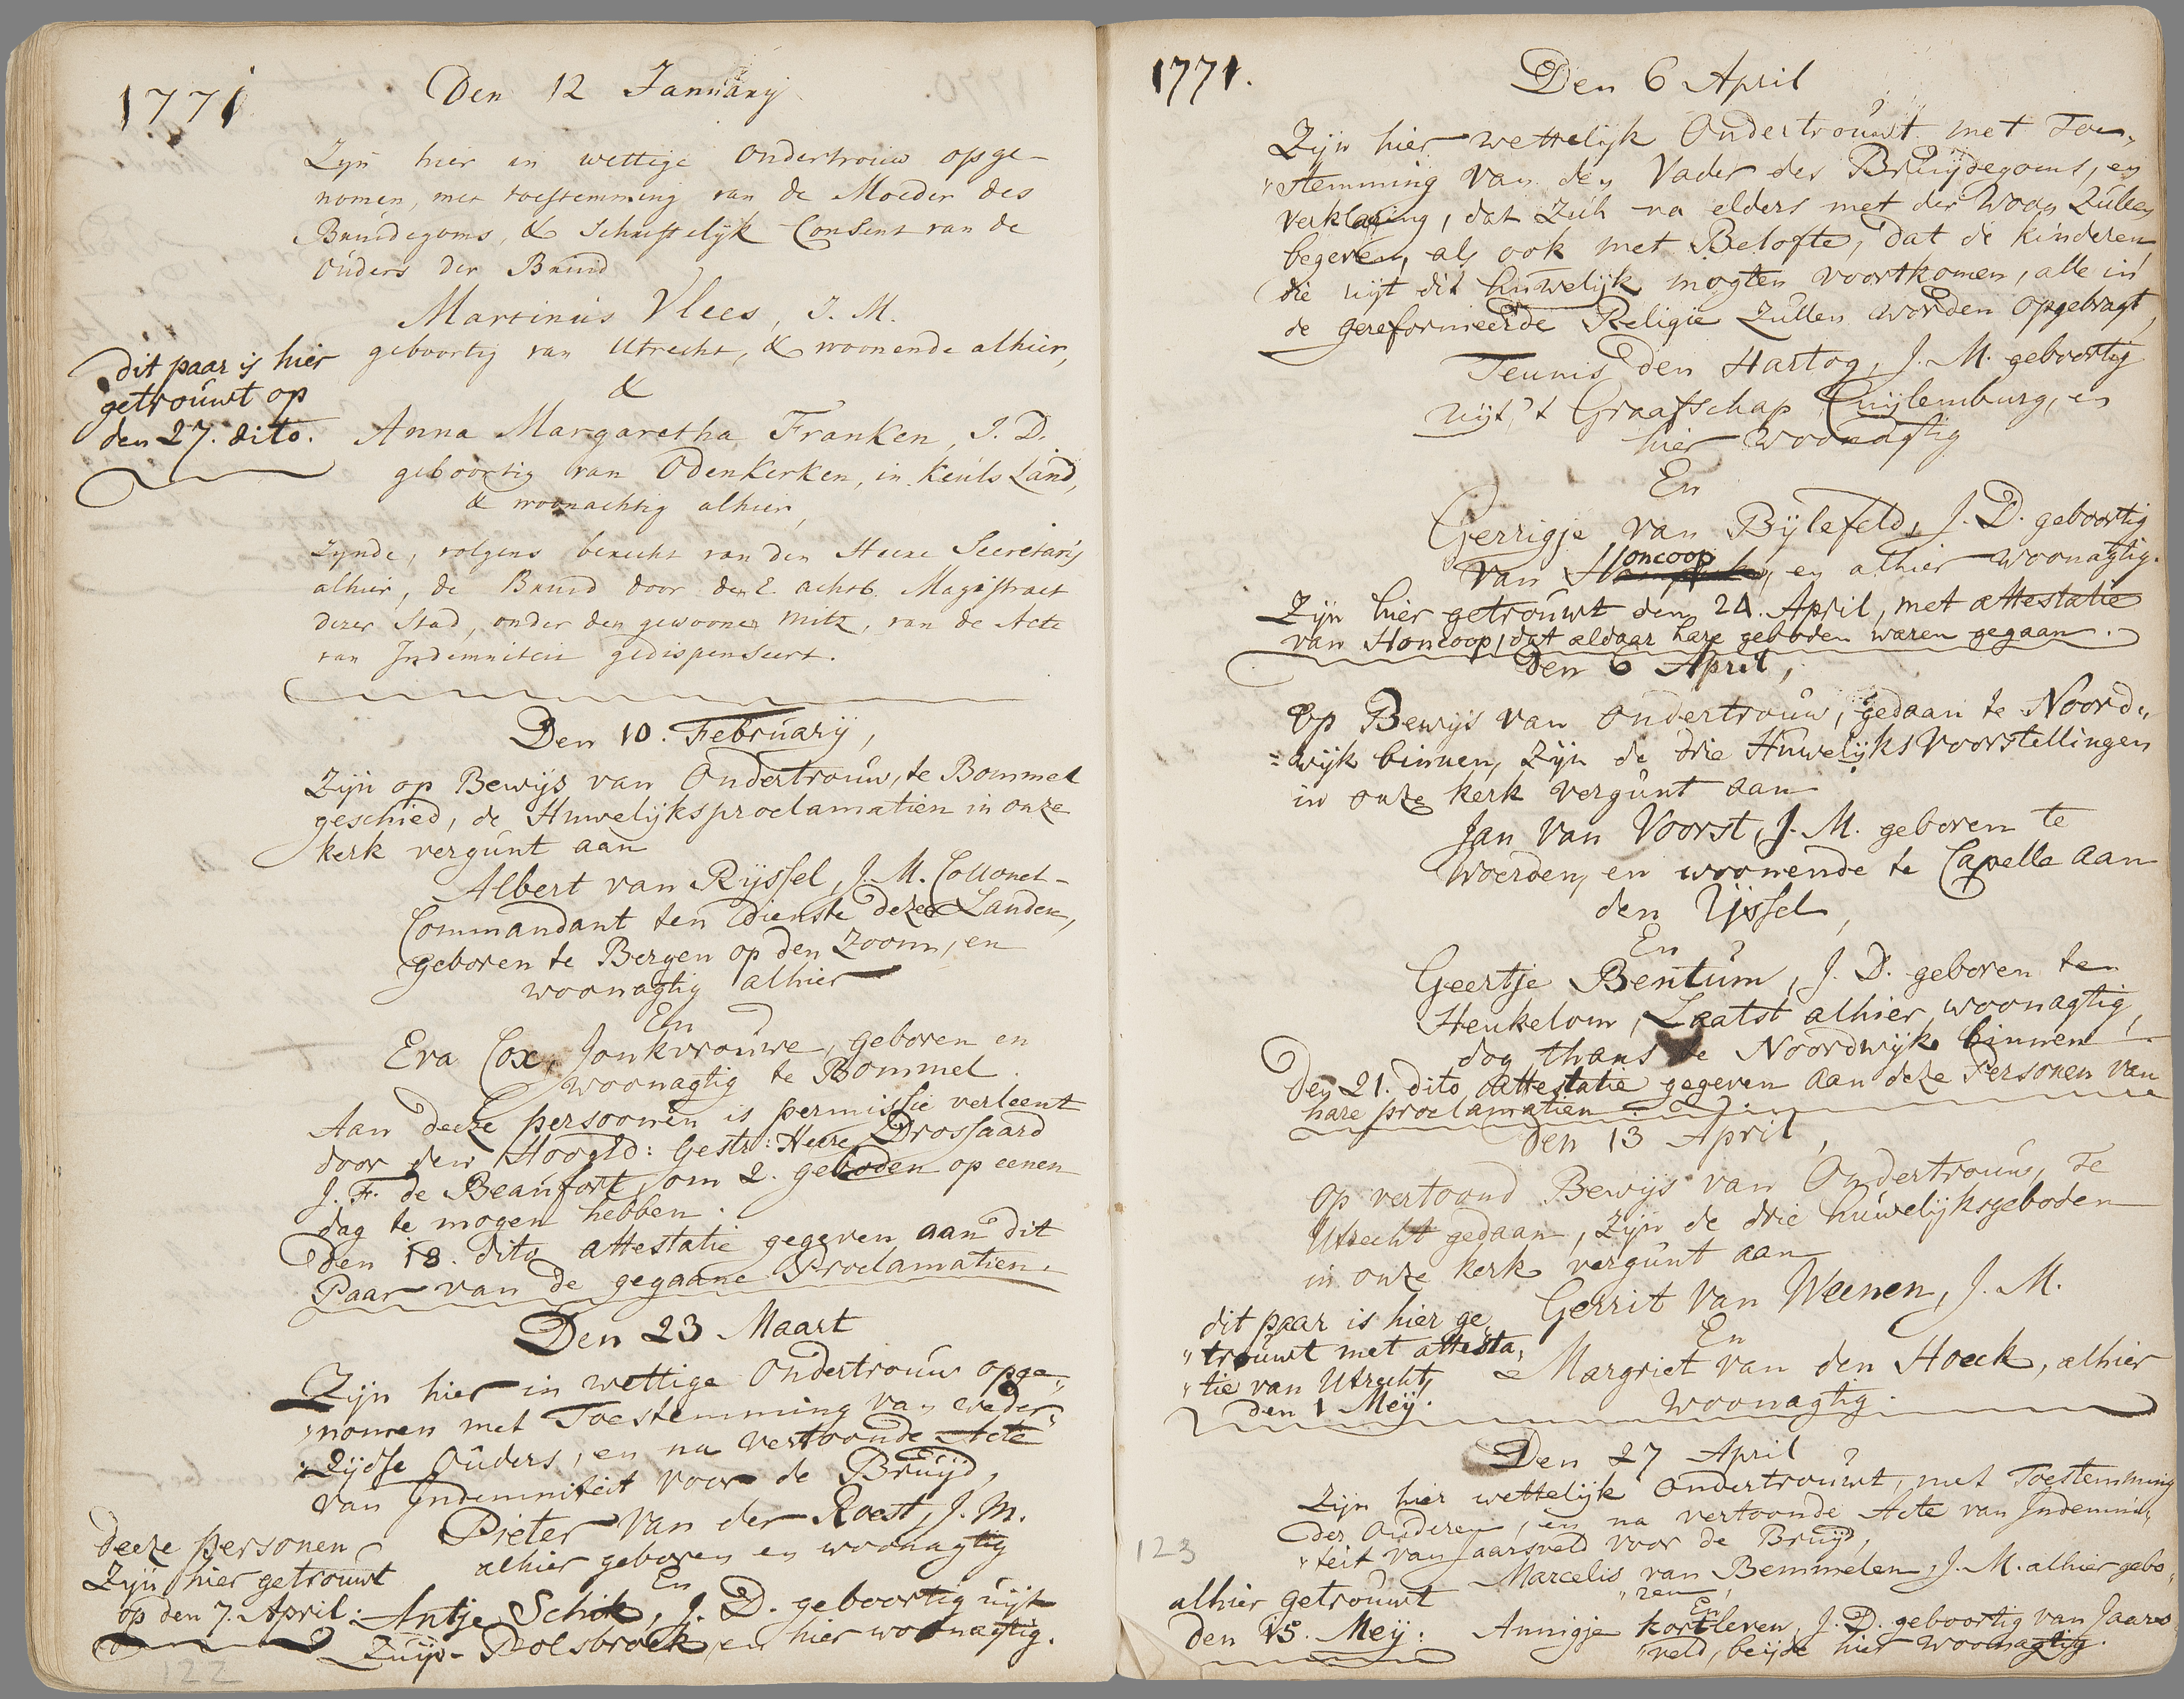 1771
Den 12 January
Zyn hier in wettige ondertrouw opge-
nomen, met toestemming van de Moeder des
Bruidegoms, & Schriftelyk Consent van de
Ouders der Bruid
Martinus Vlees, J. M.
geboortig van Utrecht, & woonende alhier,
&
Anna Margaretha Franken, J. D.
geboortig van Odenkerken, in Keuls Land,
& woonachtig alhier,
dit paar is hier
getrouwt op
den 27. dito.
Zynde, volgens bericht van den Heere Secretaris
alhier, de Bruid door den E. achtb. Magistraet
dezer Stad, onder den gewoonen mits, van de Acte
van Indemniteit gedispenseert.
Den 10. February,
Zijn op Bewijs van Ondertrouw, te Bommel
geschied, de Huwelijksproclamatien in onze
kerk vergunt aan
Albert van Rijssel, J. M. Collonel-
Commandant ten dienste dezer Landen,
geboren te Bergen op den Zoom, en
woonagtig alhier
En
Eva Cox, Jonkvrouwe, geboren en
woonagtig te Bommel.
Aan deeze persoonen is permissie verleent
door den Hoogld: Gestr: Heere Drossaard
J. F. de Beaufort, om 2. geboden op eenen
dag te mogen hebben.
Den 18. dito attestatie gegeven aan dit
Paar van de gegaane Proclamatien.
Den 23 Maart
Zijn hier in wettige Ondertrouw opge„
„nomen met Toestemming van weder„
„zijdse Ouders, en na vertoonde Acte
van Indemniteit voor de Bruijd,
Pieter van der Roest, J. M.
alhier geboren en woonagtig
En
Antje Schik, J. D. geboortig uijt
Zuijd-Polsbroek, en hier woonagtig.
deeze personen
Zijn hier getrouwt
op den 7. April:
122
1771.
Den 6 April
Zijn hier wettelijk Ondertrouwt met Toe„
„stemming van den Vader des Bruijdegoms, en
verklaring, dat zich na elders met der woon zullen
begeven, als ook met Belofte, dat de kinderen
die uijt dit huwelijk mogten voortkomen, alle in
de gereformeerde Religie zullen worden opgebragt,
Teunis den Hartog, J. M. geboortig
uijt 't Graafschap Cuijlenburg, en
hier woonagtig
En
Gerrigje van Bijlefeld, J. D. geboortig
van Honcoop, en alhier woonagtig.
Zijn hier getrouwt den 21. April, met attestatie
van Honcoop, dat aldaar hare geboden waren gegaan.
Den 6 April,
Op Bewijs van Ondertrouw, gedaan te Noord„
=wijk binnen, zijn de drie Huwelijks Voorstellingen
in onze kerk vergunt aan
Jan van Voorst, J. M. geboren te
Woerden, en woonende te Capelle aan
den IJssel,
En
Geertje Bentum, J. D. geboren ten
Heukelom, Laatst alhier woonagtig,
dog thans te Noordwijk binnen.
Den 21. dito, attestatie gegeven aan deze Personen van
hare proclamatien.
Den 13 April,
Op vertoond Bewijs van Ondertrouw, te
Utrecht gedaan, zijn de drie huwelijksgeboden
in onze kerk vergunt aan
Gerrit van Weenen, J. M.
En
Margriet van den Hoeck, alhier
woonagtig.
dit paar is hier ge„
„trouwt met attesta„
„tie van Utrecht,
den 1 Meij.
Den 27 April
Zijn hier wettelijk Ondertrouwt, met Toestemming
der Ouderen, en na vertoonde Acte van Indemni„
„teit van Jaarsveld voor de Bruijd,
Marcelis van Bemmelen, J. M. alhier gebo„
„ren,
En
Annigje Kortleven, J. D. geboortig van Jaars„
„veld, beijde hier woonagtig.
alhier getrouwt
den 15. Meij.
123